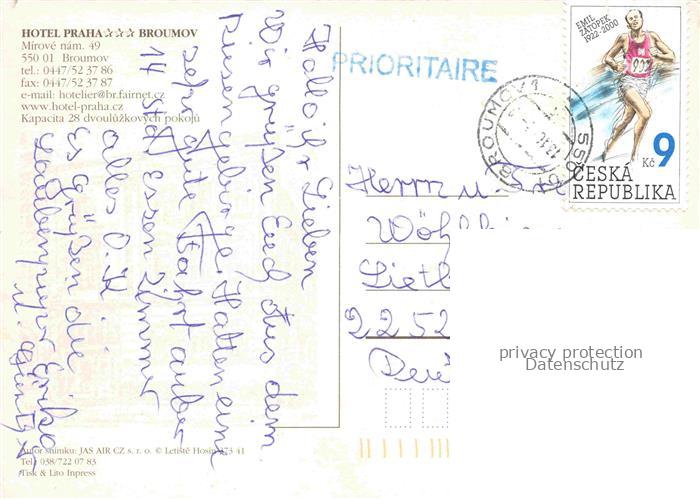 HOTEL PRAHA☆☆☆ BROUMOV
Mírové nám. 49
550 01 Broumov
tel.: 0447/52 37 86
fax: 0447/52 37 87
e-mail: hotelier@br.fairnet.cz
www.hotel-praha.cz
Kapacita 28 dvoulůžkových pokojů
PRIORITAIRE
EMIL
ZÁTOPEK
1922-2000
903
Kč 9
ČESKÁ
REPUBLIKA
BROUMOV 1
Hallo ihr Lieben
Wir grüßen Euch aus dem
Riesengebirge. Hatten eine
sehr gute Fahrt außer
14 Std. Essen Zimmer
alles O.K.
Es grüßen die
Erika
u.
Herrn u.
2252
privacy protection
Datenschutz
Autor snímku: JAS AIR CZ s. r. o. © Letiště Hosín 373 41
Tel.: 038/722 07 83
Tisk & Lito Inpress